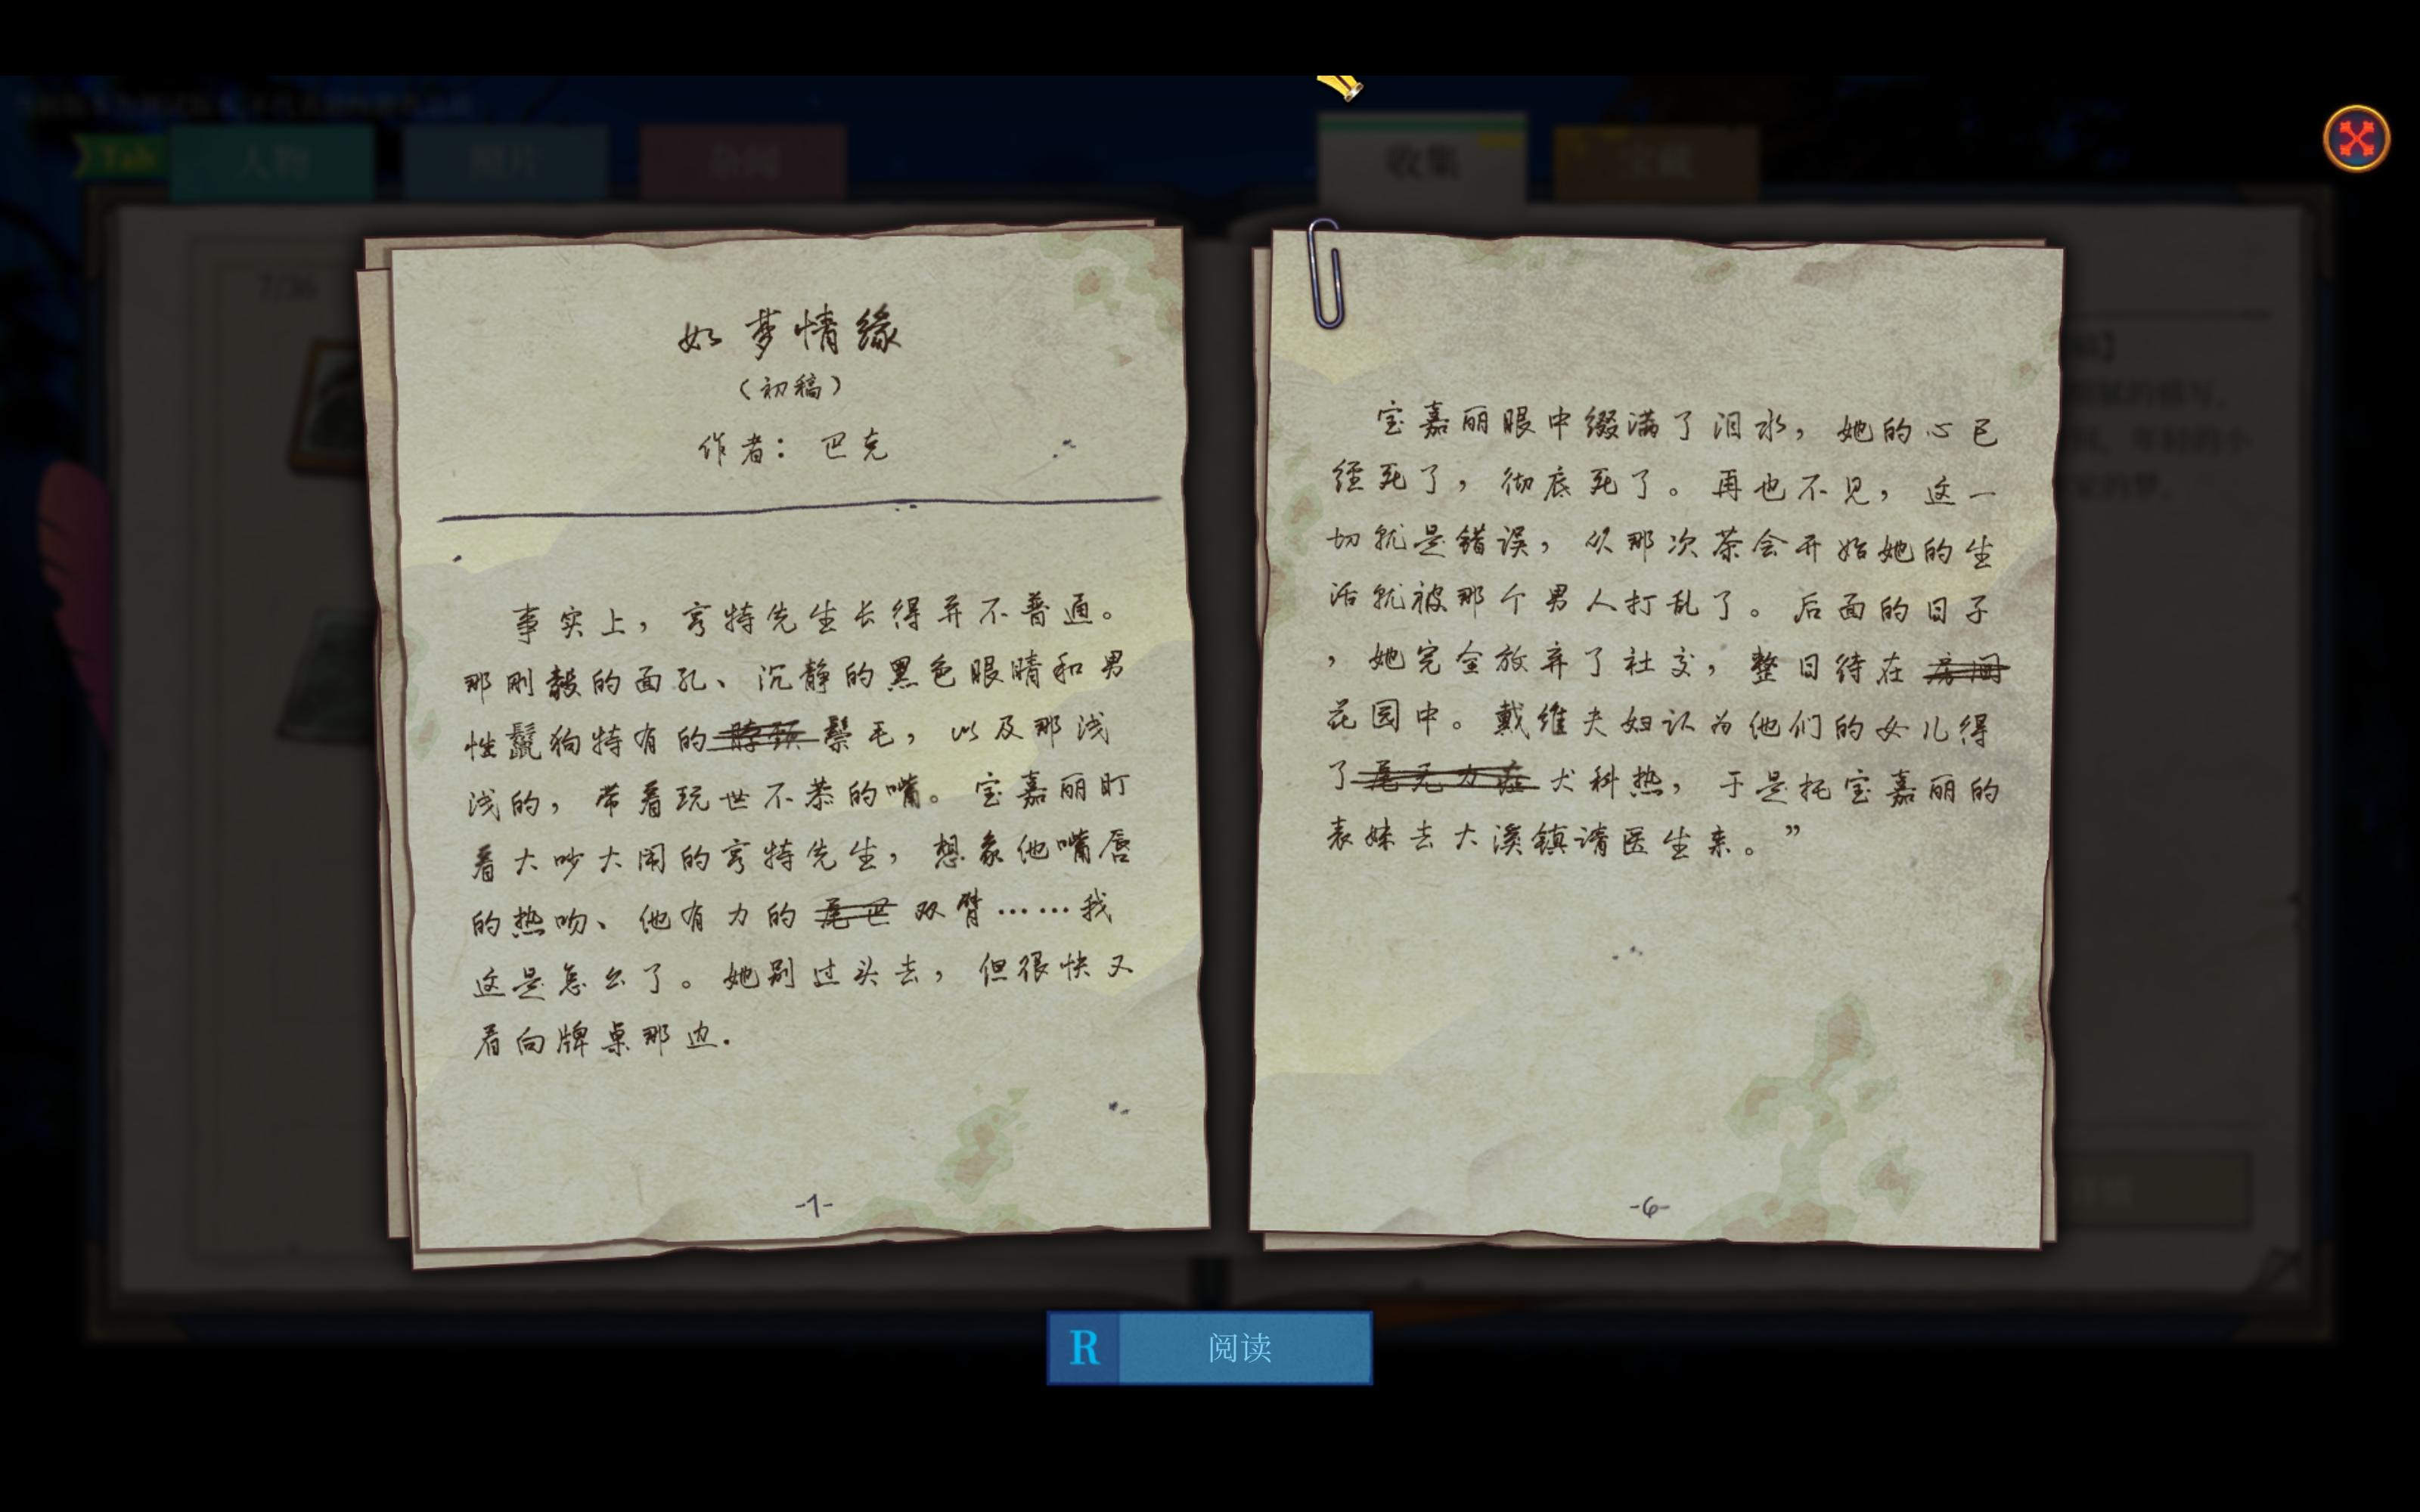 Tab
人物
照片
杂闻
收集
宝藏
7/36
如梦情缘
（初稿）
作者：巴克
事实上，亨特先生长得并不普通。
那刚毅的面孔、沉静的黑色眼睛和男
性鬣狗特有的脖颈鬃毛，以及那浅
浅的，带着玩世不恭的嘴。宝嘉丽盯
着大吵大闹的亨特先生，想象他嘴唇
的热吻、他有力的尾巴双臂……我
这是怎么了。她别过头去，但很快又
看向牌桌那边.
-1-
宝嘉丽眼中缀满了泪水，她的心已
经死了，彻底死了。再也不见，这一
切就是错误，从那次茶会开始她的生
活就被那个男人打乱了。后面的日子
，她完全放弃了社交，整日待在房间
花园中。戴维夫妇认为他们的女儿得
了尾无力症犬科热，于是托宝嘉丽的
表妹去大溪镇请医生来。”
-6-
R 阅读